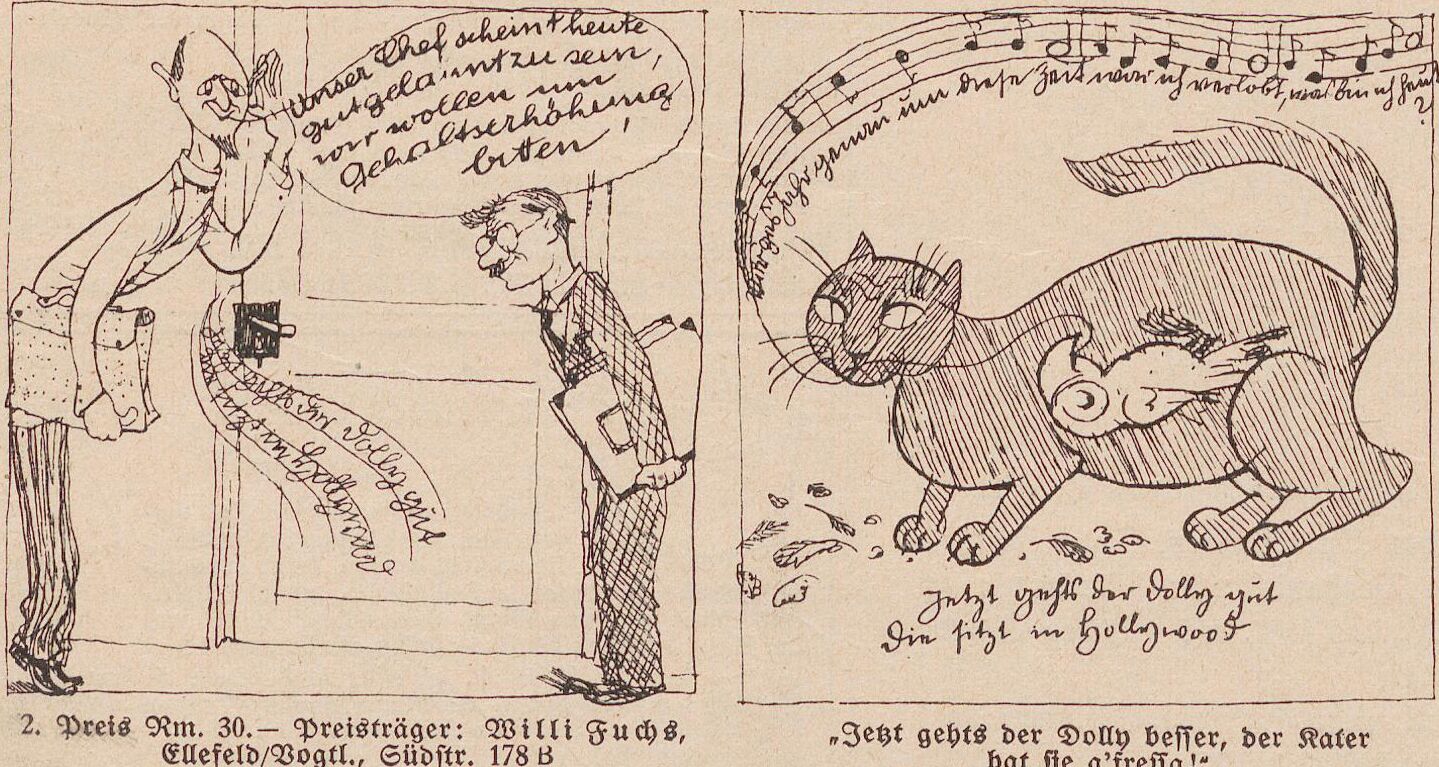 Unser Chef scheint heute
gut gelaunt zu sein,
wir wollen um
Gehaltserhöhung
bitten!
Jetzt gehts der Dolly gut
die sitzt in Hollywood
2. Preis Rm. 30.— Preisträger: Willi Fuchs,
Ellefeld/Vogtl., Südstr. 178 B
Jahr genau um diese Zeit war ich verlobt, was bin ich heut?
Jetzt gehts der Dolly gut
Die sitzt in Hollywood
„Jetzt gehts der Dolly besser, der Kater
hat sie g'fressa!"